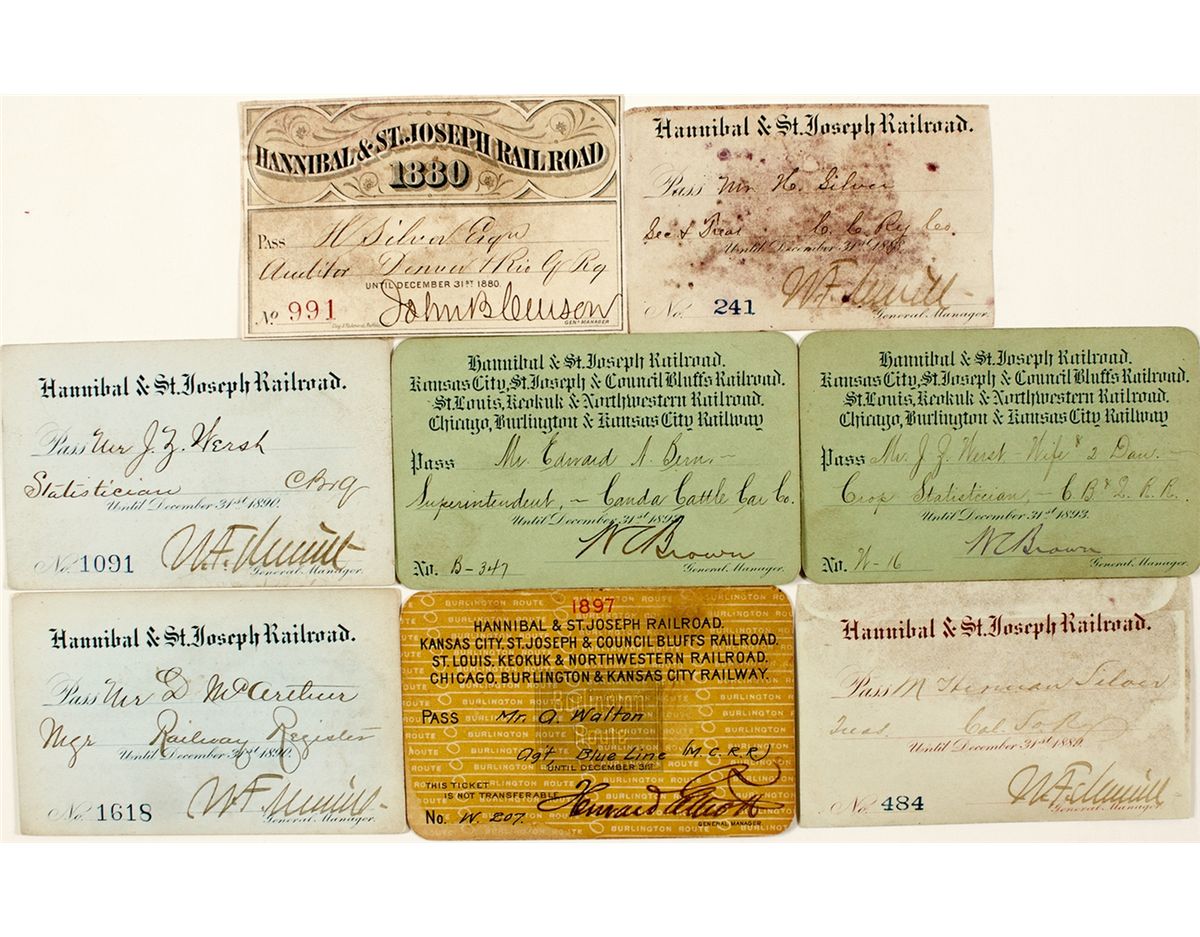 HANNIBAL & ST. JOSEPH RAILROAD
1880
Pass H Silver Esqr
Auditor Denver & Rio G Ry
UNTIL DECEMBER 31ST 1880.
No 991 John B Carson
GENL MANAGER
Hannibal & St. Joseph Railroad.
Pass Mr H. Silver
Sec & Treas. C. C. Ry Co.
Until December 31st 1888.
No. 241 W.F. Merrill
General Manager.
Hannibal & St. Joseph Railroad.
Pass Mr J. Z. Werst
Statistician CB&Q
Until December 31st 1890.
No. 1091 W.F. Merrill
General Manager.
Hannibal & St. Joseph Railroad.
Kansas City, St. Joseph & Council Bluffs Railroad.
St. Louis, Keokuk & Northwestern Railroad.
Chicago, Burlington & Kansas City Railway
Pass Mr. Edward A. Bern. –
Superintendent, – Canda Cattle Car Co.
Until December 31st
W C Brown
No. B-347 General Manager.
Hannibal & St. Joseph Railroad.
Kansas City, St. Joseph & Council Bluffs Railroad.
St. Louis, Keokuk & Northwestern Railroad.
Chicago, Burlington & Kansas City Railway
Pass Mr. J. Z. Werst – Wife & 2 Dau. –
Crop Statistician, – C. B & Q. R. R.
Until December 31st 1893.
W C Brown
No. W-16 General Manager.
Hannibal & St. Joseph Railroad.
Pass Mr D McArthur
Mgr Railway Register
Until December 31st 1890.
No. 1618 W.F. Merrill
General Manager.
BURLINGTON ROUTE
1897
HANNIBAL & ST. JOSEPH RAILROAD.
KANSAS CITY, ST. JOSEPH & COUNCIL BLUFFS RAILROAD.
ST. LOUIS, KEOKUK & NORTHWESTERN RAILROAD.
CHICAGO, BURLINGTON & KANSAS CITY RAILWAY.
Burlington Route
PASS Mr. A. Walton
Agt Blue Line (M.C.R.R)
UNTIL DECEMBER 31ST
THIS TICKET
IS NOT TRANSFERABLE
Howard Elliott
No. W. 207. GENERAL MANAGER
BURLINGTON ROUTE
Hannibal & St. Joseph Railroad.
Pass M Herman Silver
Treas. Col. Ry
Until December 31st 1889.
No. 484 W.F. Merrill
General Manager.